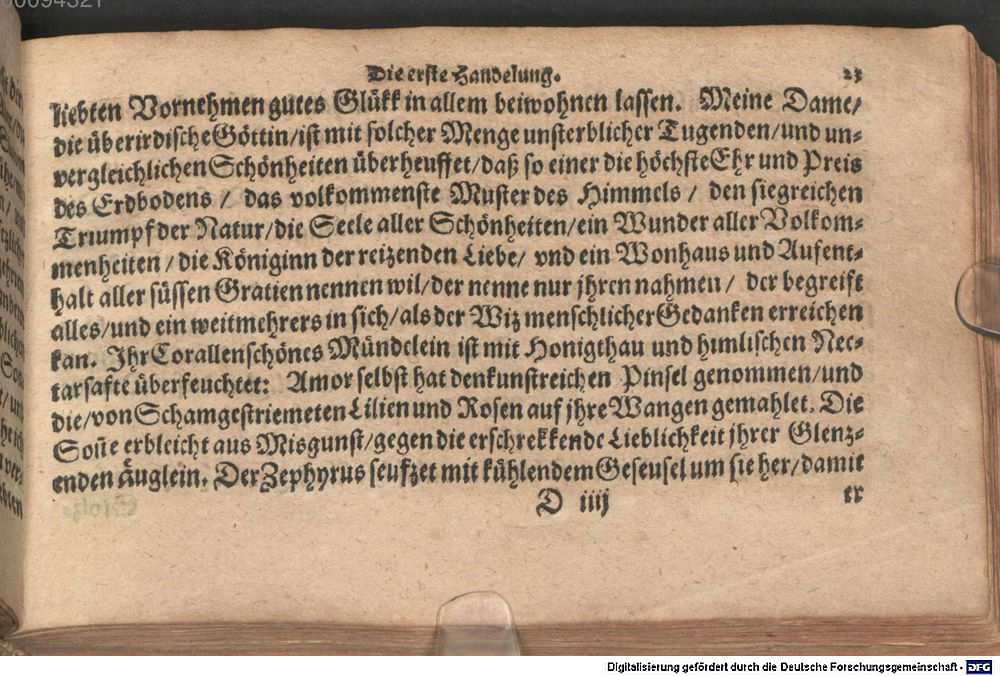 00094521
Die erste Handelung. 23
liebten Vornehmen gutes Glükk in allem beiwohnen lassen. Meine Dame/
die überirdische Göttin/ist mit solcher Menge unsterblicher Tugenden/und un-
vergleichlichen Schönheiten überheuffet/daß so einer die höchste Ehr und Preis
des Erdbodens / das volkommenste Muster des Himmels / den siegreichen
Triumpf der Natur/die Seele aller Schönheiten/ein Wunder aller Volkom-
menheiten / die Königinn der reizenden Liebe/ vnd ein Wonhaus und Aufent-
halt aller süssen Gratien nennen wil/der nenne nur jhren nahmen / der begreift
alles/und ein weitmehrers in sich/als der Wiz menschlicher Gedanken erreichen
kan. Ihr Corallenschönes Mündelein ist mit Honigthau und himlischen Nec-
tarsafte überfeuchtet: Amor selbst hat den kunstreichen Pinsel genommen/und
die/von Scham gestriemeten Lilien und Rosen auf jhre Wangen gemahlet. Die
Soñe erbleicht aus Misgunst/gegen die erschrekkende Lieblichkeit jhrer Glenz-
enden Äuglein. Der Zephyrus seufzet mit kühlendem Geseusel um sie her/damit
D iiij er
Digitalisierung gefördert durch die Deutsche Forschungsgemeinschaft - DFG